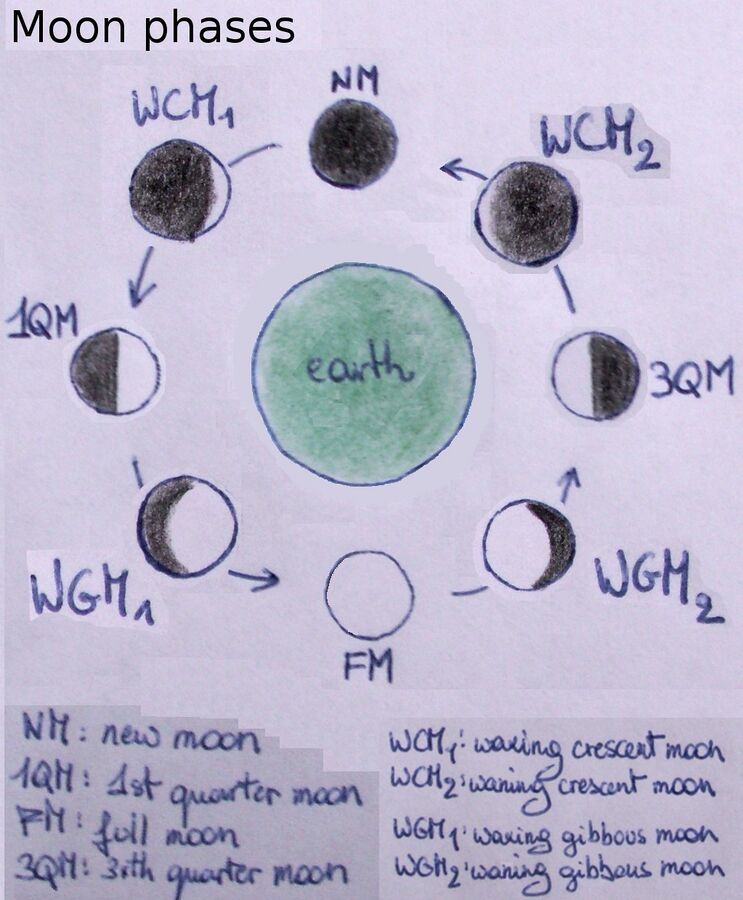 Moon phases
NM
WCM1
WCM2
1QM
earth
3QM
WGM1
WGM2
FM
NM: new moon
1QM: 1st quarter moon
FM: foil moon
3QM: 3rth quarter moon
WCM1: waxing crescent moon
WCM2: waning crescent moon
WGM1: waxing gibbous moon
WGM2: waning gibbous moon